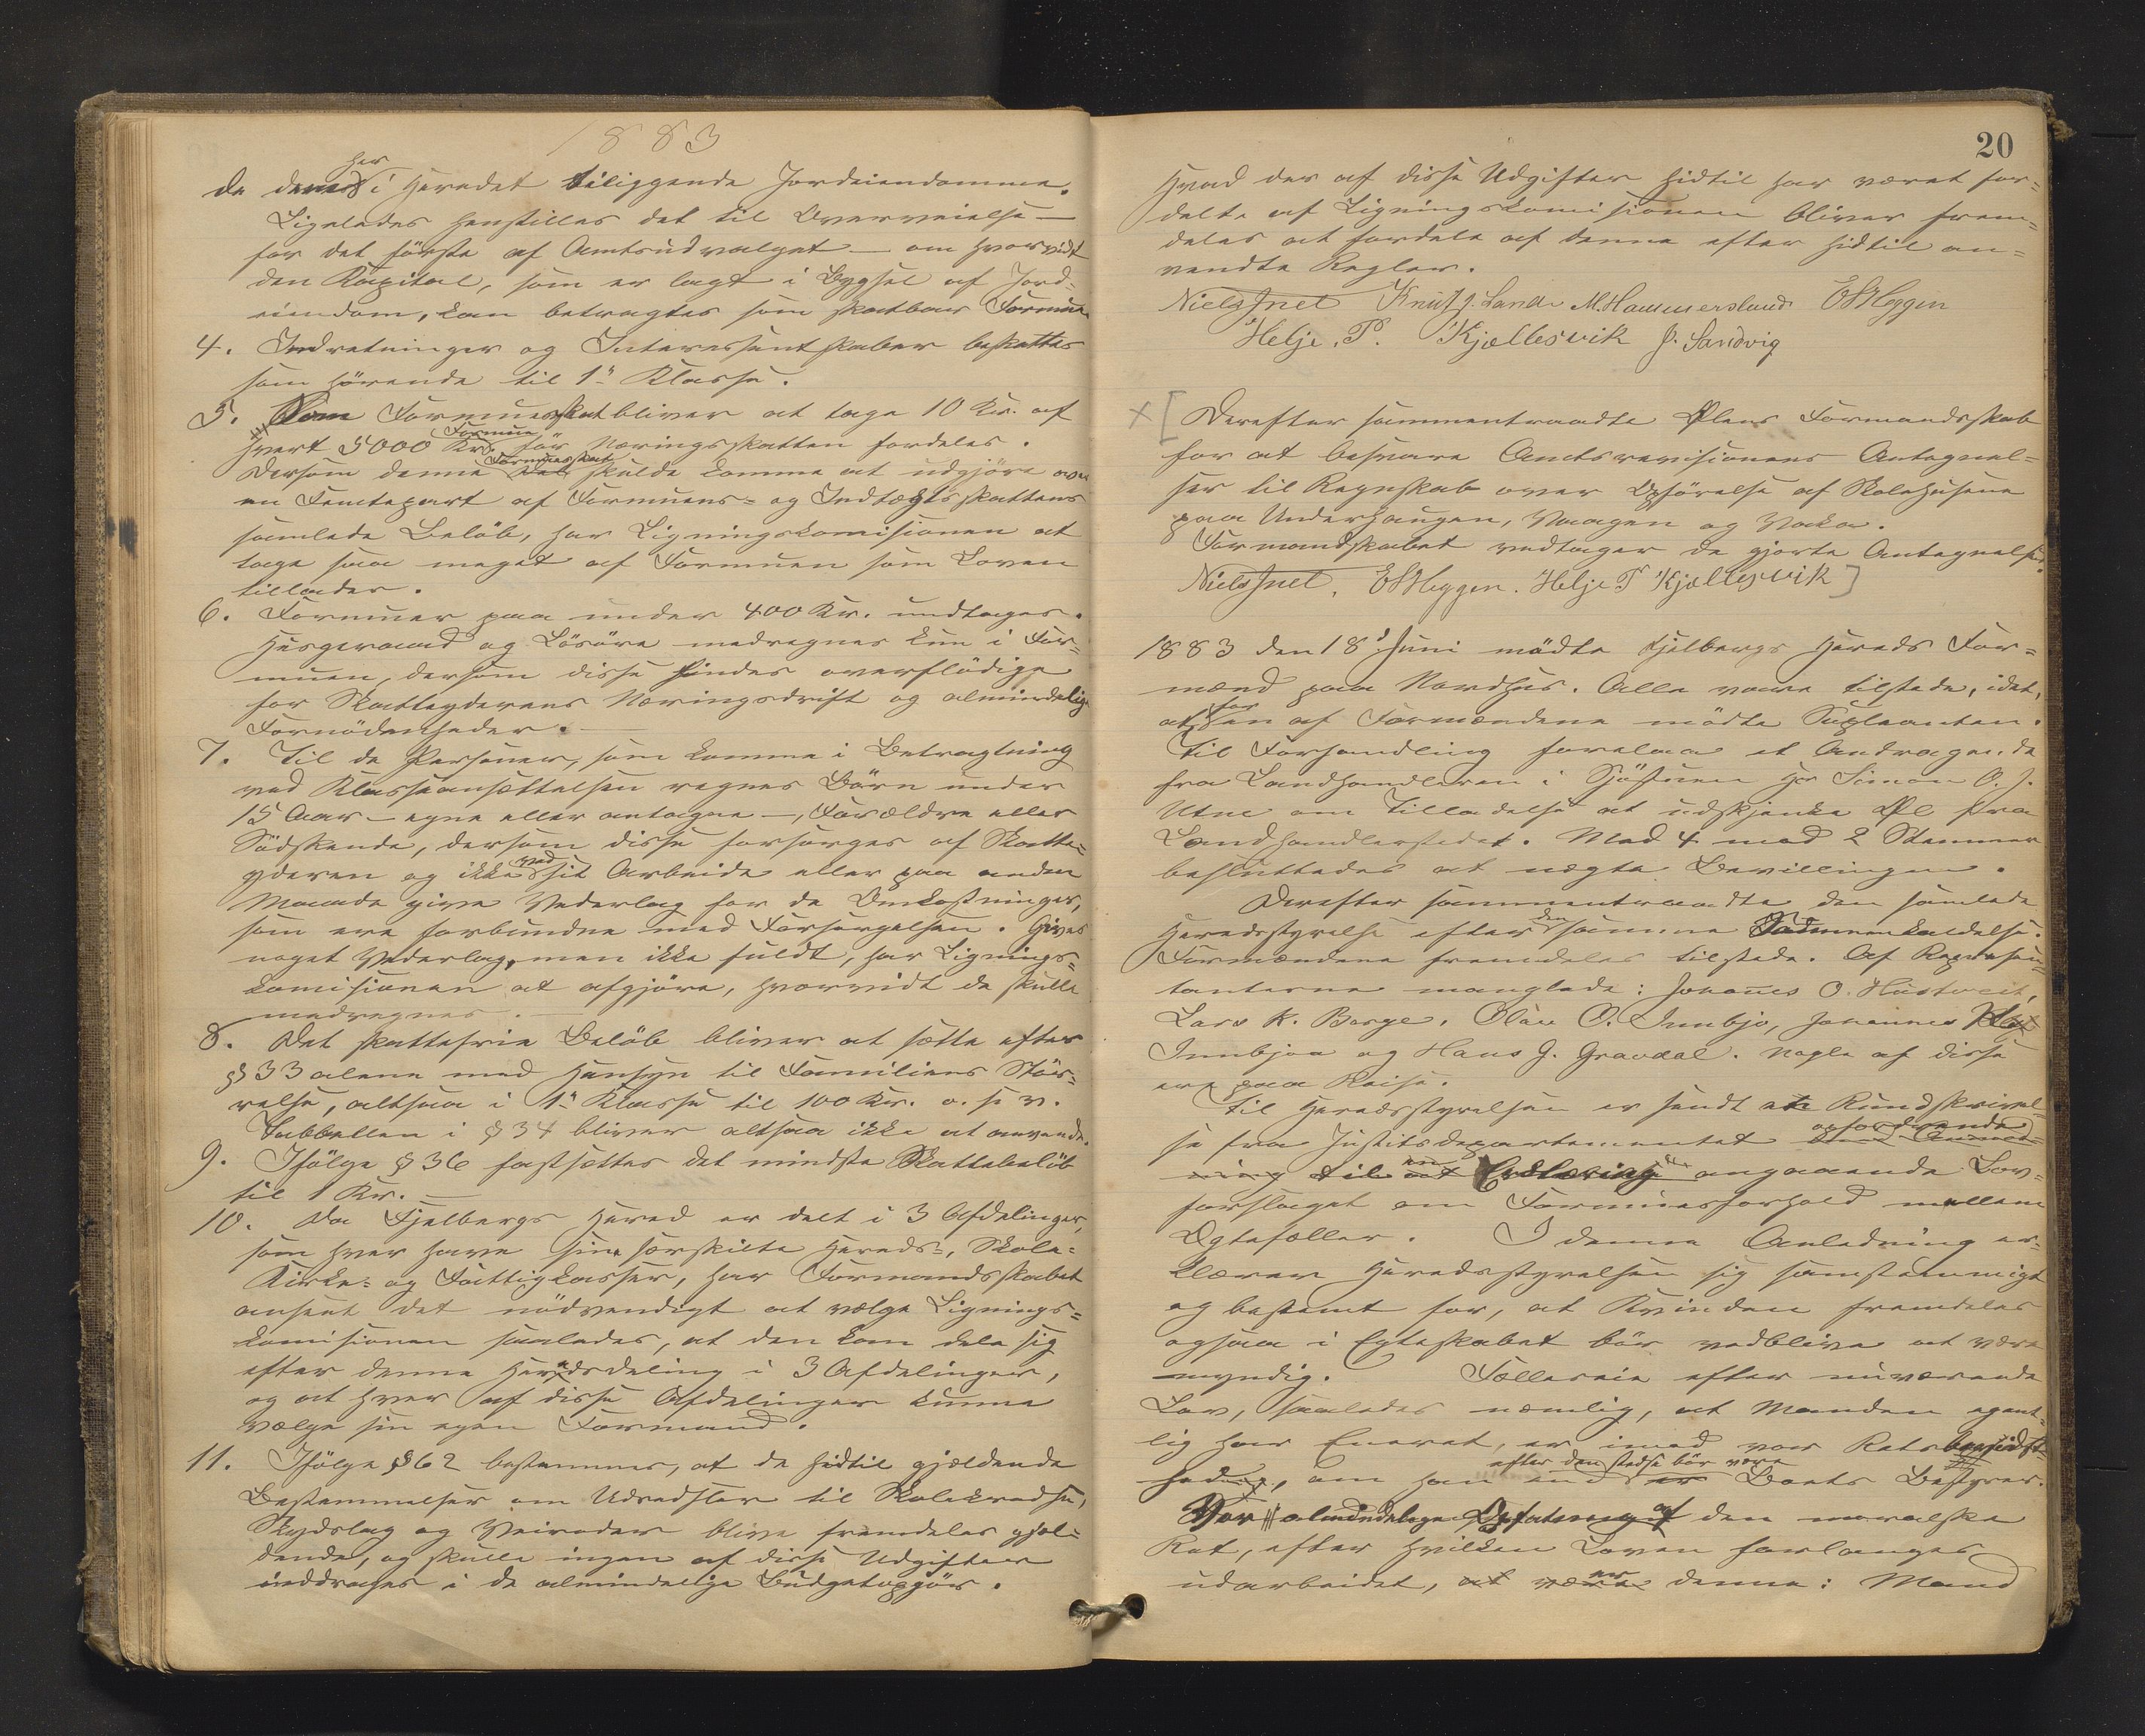 1883
da deres her i Heredet beliggende Jordeiendomme.
Ligeledes henstilles det til Overveielse —
for det første af Amtsudvalget — om hvorvidt
den Kapital, som er lagt i Bygsel af Jord=
eiendom, kan betragtes som skatbar Formue
4. Indretninger og Interessentskaber beskattes
som hörende til 1ste Klasse.
5. Som Formuesskat bliver at tage 10 Kr. af
hvert 5000 Kr. Formue för Næringsskatten fordeles.
Dersom denne Formuesskat skulde komme at udgjöre over
en Femtepart af Formues= og Indtægtsskattens
samlede Belöb, har Ligningskomisionen at
tage saa meget af Formuen som Loven
tillader.
6. Formuer paa under 400 Kr. undtages.
Husgeraad og Lösöre medregnes kun i For=
muen, dersom disse findes overflödige
for Skatteyderens Næringsdrift og almindelige
Fornödenheder. —
7. Til de Personer, som komme i Betragtning
ved Klasseansættelsen regnes Börn under
15 Aar — egne eller antagne —, Forældre eller
Södskende, dersom disse forsörges af Skatte=
yderen og ikke ved sit Arbeide eller paa anden
Maade give Vederlag for de Omkostninger,
som ere forbundne med Forsörgelsen. Gives
noget Vederlag, men ikke fuldt, har Lignings=
komisionen at afgjöre, hvorvidt de skulle
medregnes. —
8. Det skattefrie Belöb bliver at sætte efter
§ 33 alene med Hensyn til Familiens Stör=
relse, altsaa i 1ste Klasse til 100 Kr. o. s. v.
Tabbellen i § 34 bliver altsaa ikke at anvende.
9. Ifölge § 36 fastsættes det mindste Skattebelöb
til 1 Kr. —
10. Da Fjelbergs Hered er delt i 3 Afdelinger,
som hver have sine særskilte Hereds=, Skole=
Kirke= og Fattigkasser, har Formandsskabet
anseet det nödvendigt at vælge Lignings=
komisionen saaledes, at den kan dele sig
efter denne Heredsdeling i 3 Afdelinger,
og at hver af disse Afdelinger kunne
vælge sin egen Formand.
11. Ifölge § 62 bestemmes, at de hidtil gjældende
Bestemmelser om Udredsler til Skolekredse,
Skydslag og Veiroder blive fremdeles gjæl=
dende, og skulle ingen af disse Udgifter
inddrages i de almindelige Budgetopgjör.
20
Hvad der af disse Udgifter hidtil har været for=
delt af Ligningskomisionen bliver frem=
deles at fordele af denne efter hidtil an=
vendte Regler.
Niels Juel Knut J. Lande M. Hammersland E Heggen
Helje. P. Kjællesvik J. Sandvig
× [ Derefter sammentraadte Ølens Formandsskab
for at besvare Amtsrevisionens Antegnel=
ser til Regnskab over Opförelse af Skolehusene
paa Underhaugen, Vaagen og Vaka.
Formandskabet vedtager de gjorte Antegnelser.
Niels Juel. E Heggen. Helje P Kjællesvik ]
1883 den 18de Juni mödte Fjelbergs Hereds For=
mænd paa Nordhus. Alle vare tilstede, idet,
at for en af Formændene mödte Supleanten.
Til Forhandling forelaa et Andragende
fra Landhandleren i Sjöstuen Hr Simon O. J.
Utne om Tilladelse at udskjenke Øl fra
Landhandlerstedet. Med 4 mod 2 Stemmer
besluttedes at nægte Bevillingen.
Derefter sammentraadte den samlede
Heredsstyrelse efter den samme Sammenkaldelse.
Formændene fremdeles tilstede. Af Repræsen=
tanterne manglede: Johannes O. Hustveit,
Lars K. Berge, Olav O. Innbjo, Johannes
Innbjoa og Hans J. Gravdal. Nogle af disse
ere paa Reise.
Til Heredsstyrelsen er sendt et Rundskrivel=
se fra Justitsdepartementet opfordrende
ning til en Erklæring angaaende Lov=
forslaget om Formuesforhold mellem
Ægtefæller. I denne Anledning er=
klærer Heredsstyrelsen sig samstemmigt
og bestemt for, at Kvinden fremdeles
ogsaa i Egteskabet bör vedblive at være
myndig. Fælleseie efter nuværende
Lov, saaledes nemlig, at Manden egent=
lig har Eneret, er imod vor Retsbevidst=
hed, om han end efter den stedse bör være Boets Bestyrer.
Vor almindelige Opfatning af den moralske
Ret, efter hvilken Loven forlanges
udarbeidet, at være er denne: Mand